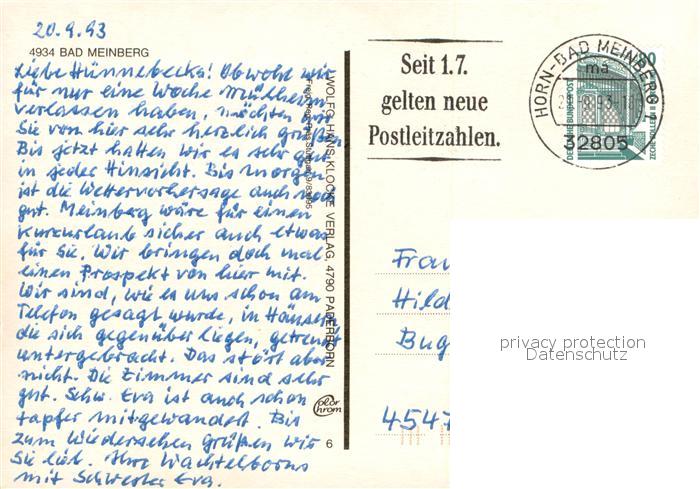 20.9.93
4934 BAD MEINBERG
Liebe Hünnebecks! Obwohl wir
für nur eine Woche Mülheim
verlassen haben, möchten wir
Sie von hier sehr herzlich grüßen.
Bis jetzt hatten wir es sehr gut
in jeder Hinsicht. Bis morgen
ist die Wettervorhersage auch noch
gut. Meinberg wäre für einen
Kurzurlaub sicher auch etwas
für Sie. Wir bringen doch mal
einen Prospekt von hier mit.
Wir sind, wie es uns schon am
Telefon gesagt wurde, in Häusern
die sich gegenüber liegen, getrennt
untergebracht. Das stört aber
nicht. Die Zimmer sind sehr
gut. Schw. Eva ist auch schon
tapfer mitgewandert. Bis
zum Wiedersehen grüßen wir
Sie lieb. Ihre Wachtelborns
mit Schwester Eva.
WOLFG. HANS KLOCKE VERLAG, 4790 PADERBORN
Color
chrom
6
Seit 1.7.
gelten neue
Postleitzahlen.
HORN-BAD MEINBERG
ma
93
32805
DEUTSCHE BUNDESPOST
ZECHE ZOLLERN II
Frau
Hild
Bug
4547
privacy protection
Datenschutz